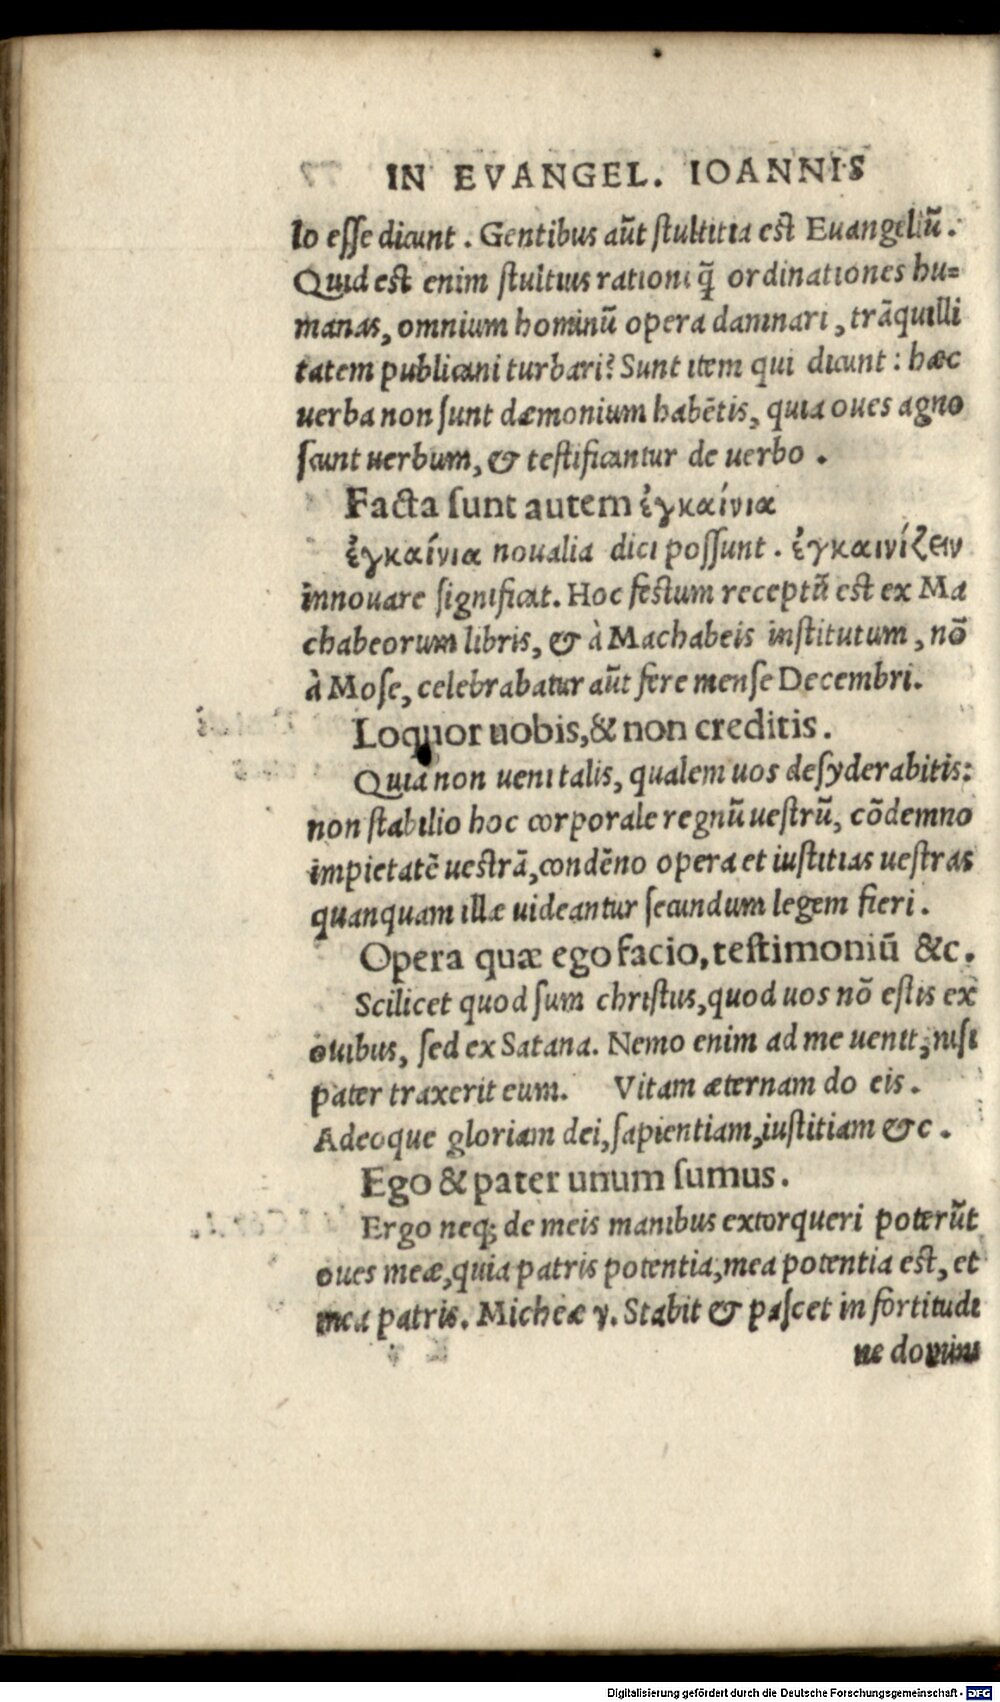 IN EVANGEL. IOANNIS
lo esse dicunt. Gentibus aūt stultitia est Euangeliū.
Quid est enim stultius rationi q̃ ordinationes hu=
manas, omnium hominū opera damnari, trāquilli
tatem publicam turbari? Sunt item qui dicunt: hæc
uerba non sunt dæmonium habētis, quia oues agno
scunt uerbum, & testificantur de uerbo.
Facta sunt autem ἐγκαίνια
ἐγκαίνια noualia dici possunt. ἐγκαινίζειν
innouare significat. Hoc festum receptū est ex Ma
chabeorum libris, & à Machabeis institutum, nō
à Mose, celebrabatur aūt fere mense Decembri.
Loquor uobis, & non creditis.
Quia non ueni talis, qualem uos desyderabitis:
non stabilio hoc corporale regnū uestrū, cōdemno
impietatē uestrā, condēno opera et iustitias uestras
quanquam illæ uideantur secundum legem fieri.
Opera quæ ego facio, testimoniū &c.
Scilicet quod sum christus, quod uos nō estis ex
ouibus, sed ex Satana. Nemo enim ad me uenit, nisi
pater traxerit eum. Vitam æternam do eis.
Adeoque gloriam dei, sapientiam, iustitiam &c.
Ego & pater unum sumus.
Ergo neq; de meis manibus extorqueri poterūt
oues meæ, quia patris potentia, mea potentia est, et
mea patris. Micheæ v. Stabit & pascet in fortitudi
ne domini
Digitalisierung gefördert durch die Deutsche Forschungsgemeinschaft - DFG